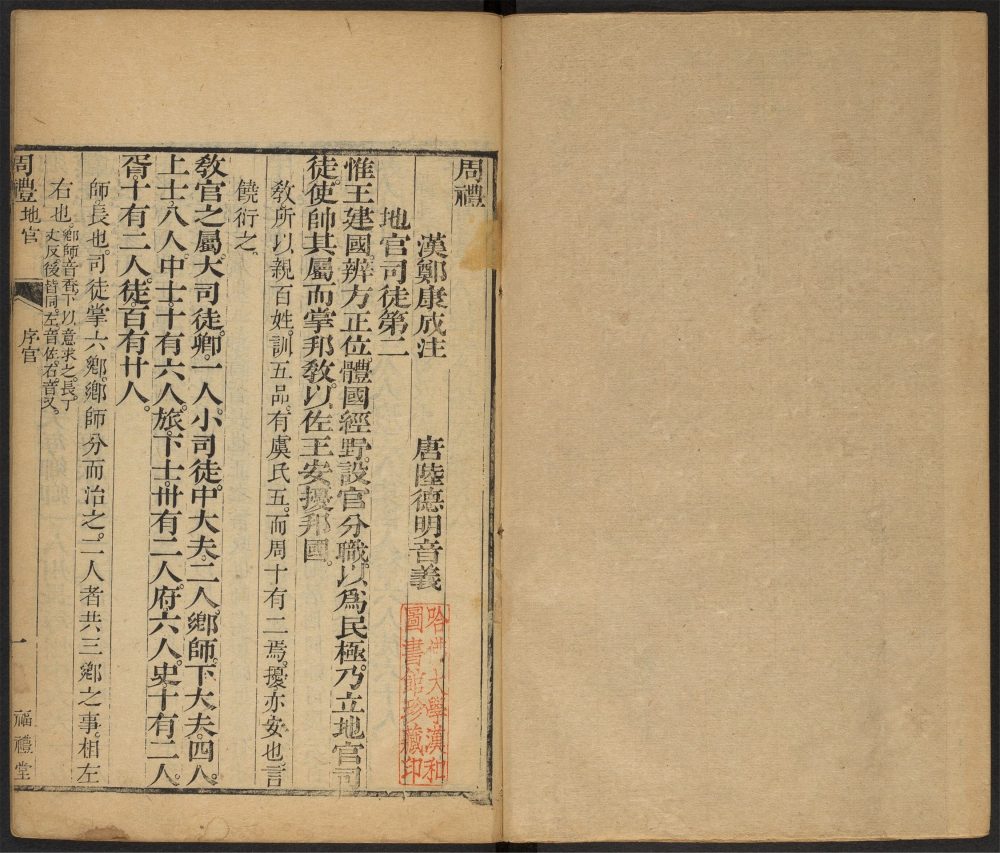 周禮
漢鄭康成注　唐陸德明音義
地官司徒第二
惟王建國。辨方正位。體國經野。設官分職。以爲民極。乃立地官司
徒。使帥其屬而掌邦敎。以佐王安擾邦國。
敎所以親百姓。訓五品。有虞氏五。而周十有二焉。擾亦安也。言
饒衍之。
敎官之屬。大司徒。卿一人。小司徒。中大夫二人。鄉師。下大夫四人。
上士八人。中士十有六人。旅下士卅有二人。府六人。史十有二人。
胥十有二人。徒百有廿人。
師。長也。司徒掌六鄉。鄉師分而治之。二人者共三鄉之事。相左
右也。
鄉師音香。下以意求之。長。丁
丈反。後皆同。左音佐。右音又。
周禮 地官 序官 一 福禮堂
哈佛大學漢和
圖書館珍藏印